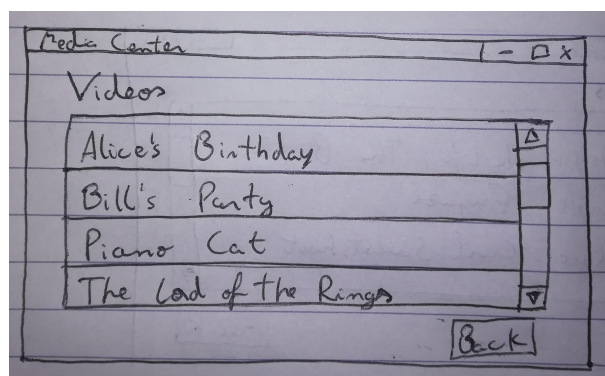 Media Center - □ x
Videos
Alice's Birthday
Bill's Party
Piano Cat
The Lord of the Rings
Back